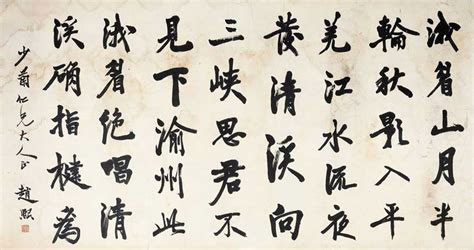 涐眉山月半
輪秋影入平
羌江水流夜
發清溪向
三峽思君不
見下渝州此
涐眉絶唱清
溪碻指楗為
少仁兄大人正 趙熙